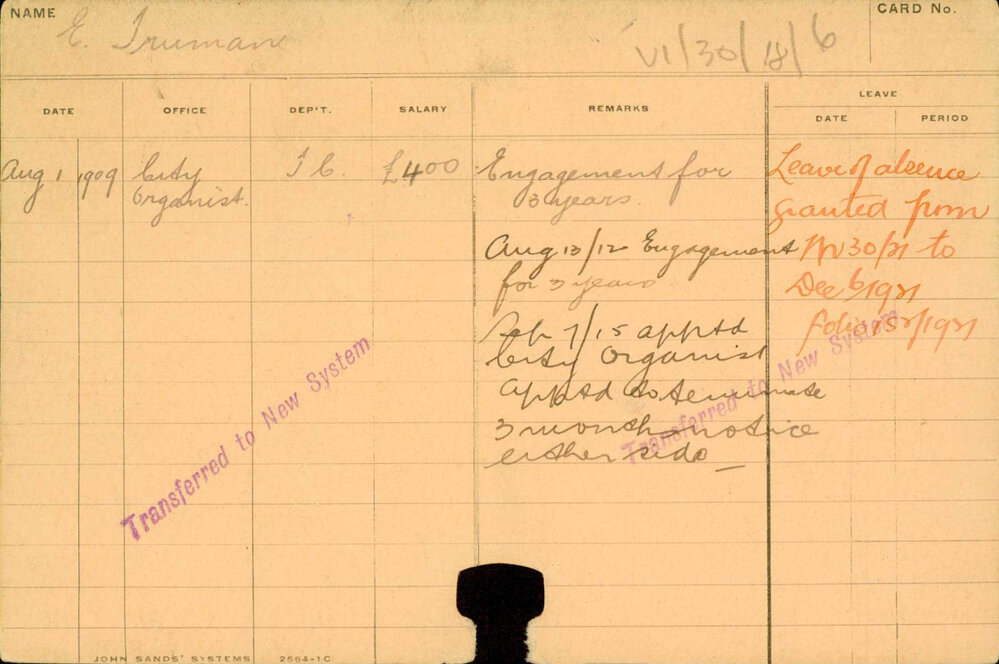 NAME
E. Truman
CARD No.
VI/30/18/6
DATE OFFICE DEP'T. SALARY REMARKS LEAVE
DATE PERIOD
Aug 1 1909 City T C. £400 Engagement for
Organist. 3 years.
Aug 13/12 Engagement
for 3 years
Feb 7/15 apptd
City Organist
apptd to terminate
3 month notice
either side
Leave of absence
granted from
30/21 to
Dec 6/1921
folio /1921
Transferred to New System
Transferred to New System
JOHN SANDS' SYSTEMS 2564-1C